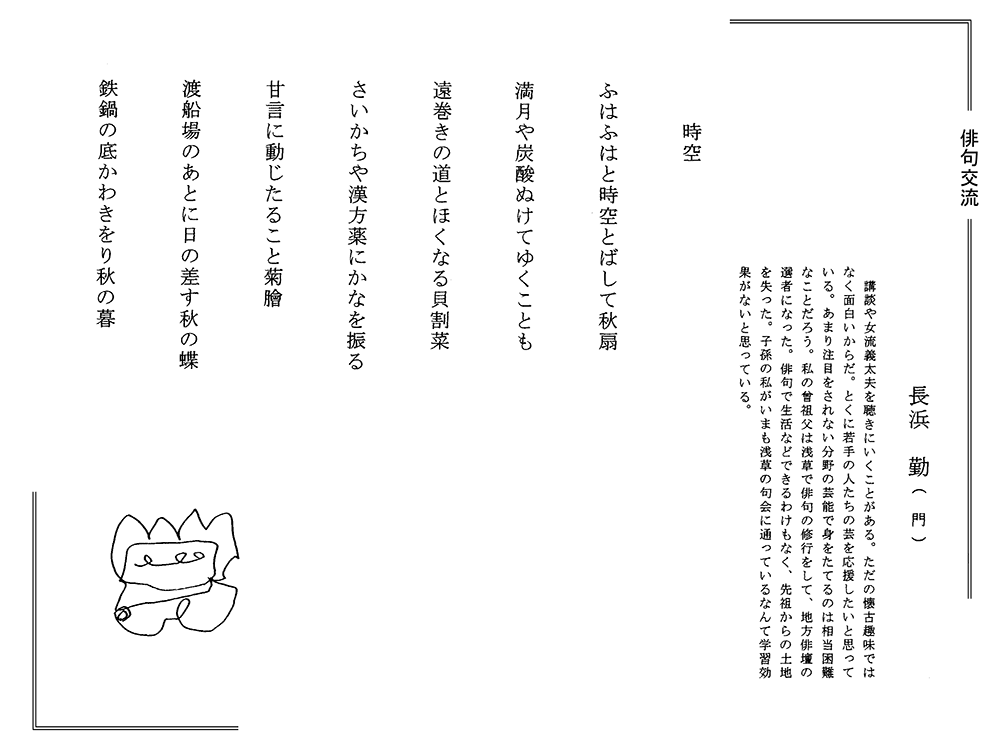 俳句交流
長浜 勤（門）
　講談や女流義太夫を聴きにいくことがある。ただの懐古趣味では
なく面白いからだ。とくに若手の人たちの芸を応援したいと思って
いる。あまり注目をされない分野の芸能で身をたてるのは相当困難
なことだろう。私の曾祖父は浅草で俳句の修行をして、地方俳壇の
選者になった。俳句で生活などできるわけもなく、先祖からの土地
を失った。子孫の私がいまも浅草の句会に通っているなんて学習効
果がないと思っている。
時空
ふはふはと時空とばして秋扇
満月や炭酸ぬけてゆくことも
遠巻きの道とほくなる貝割菜
さいかちや漢方薬にかなを振る
甘言に動じたること菊膾
渡船場のあとに日の差す秋の蝶
鉄鍋の底かわきをり秋の暮